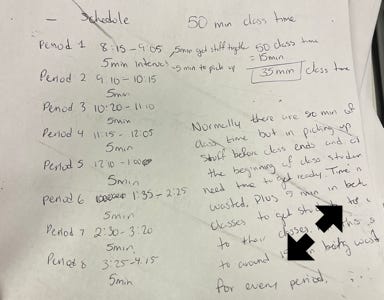 - Schedule
50 min class time
Period 1 8:15 - 9:05
5min interval
5min get stuff together
5 min to pick up
50 class time
- 15min
35min class time
Period 2 9:10 - 10:15
5min
Period 3 10:20 - 11:10
5min
Period 4 11:15 - 12:05
5min
Period 5 12:10 -
5min
Period 6 1:35 - 2:25
5min
Period 7 2:30 - 3:20
5min
Period 8 3:25 - 4:15
5min
Normally there are 50 min of
class time but in picking up
stuff before class ends and at
the beginning of class student
need time to get ready. Time is
wasted. Plus 5 min in
classes to get
to their classes.
to around being
for every period.